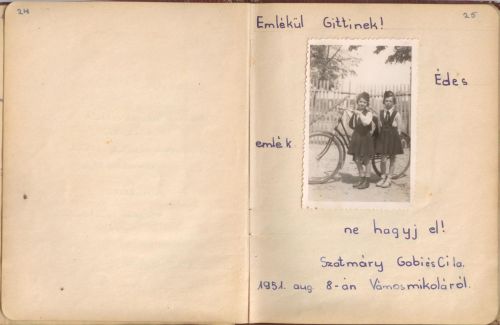 24
25
Emlékül Gittinek!
Édes
emlék
ne hagyj el!
Szatmáry Gabi és Cila.
1951. aug. 8-án Vámosmikoláról.